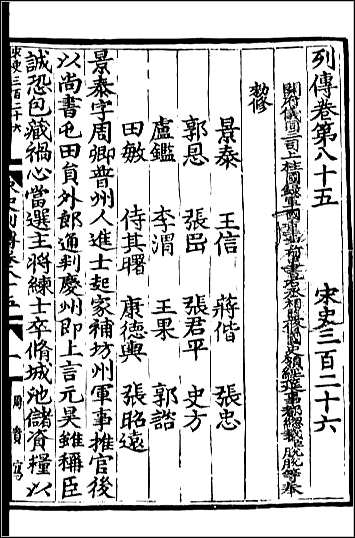 列傳卷第八十五　宋史三百二十六
開府儀同三司上柱國錄軍國重事前中書右丞相監修國史領經筵事都總裁脫脫等奉
勑修
景泰　王信　蔣偕　張忠
郭恩　張岊　張君平　史方
盧鑑　李渭　王果　郭諮
田敏　侍其曙　康德輿　張昭遠
景泰字周卿普州人進士起家補坊州軍事推官後
以尚書屯田員外郎通判慶州即上言元昊雖稱臣
誠恐包藏禍心當選主將練士卒脩城池儲資糧以
宋史三百二十六